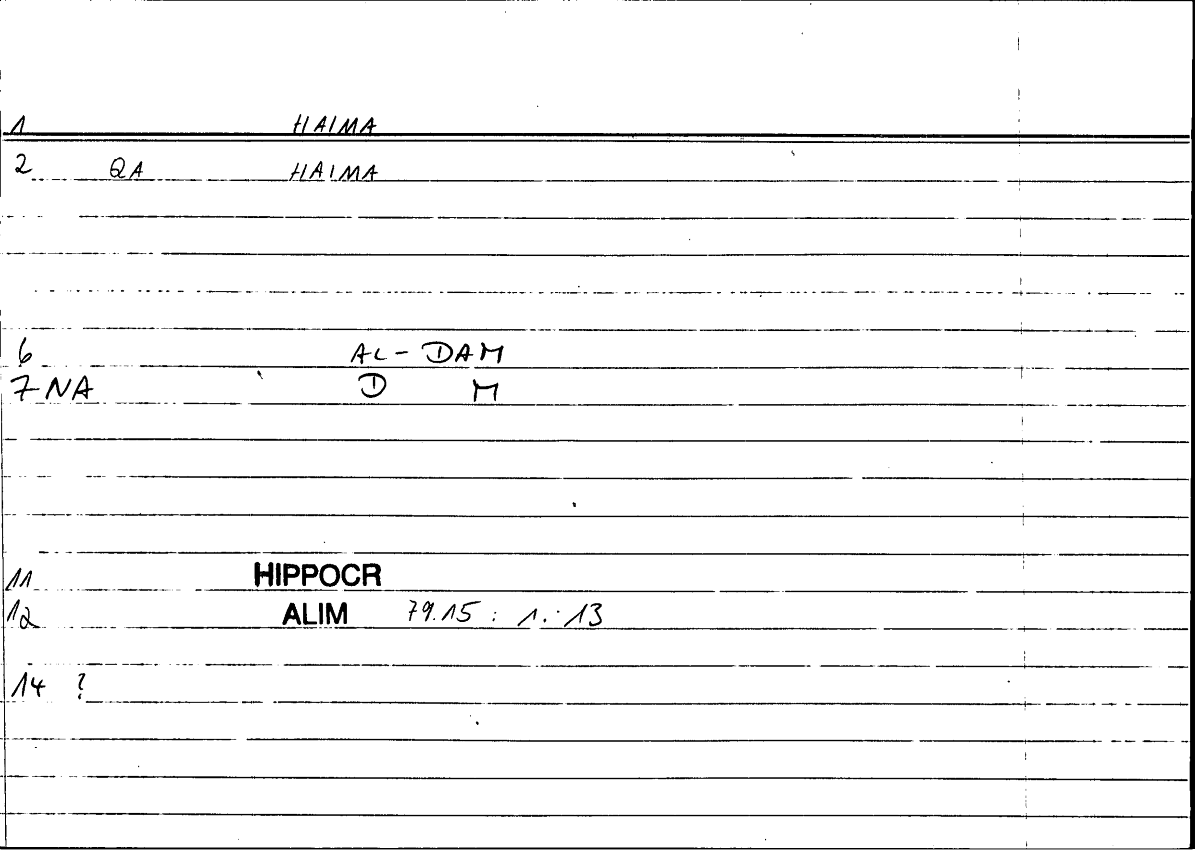 1 HAIMA
2 QA HAIMA
6 AL-DAM
7 NA D M
11 HIPPOCR
12 ALIM 79.15 : 1.: 13
14 ?